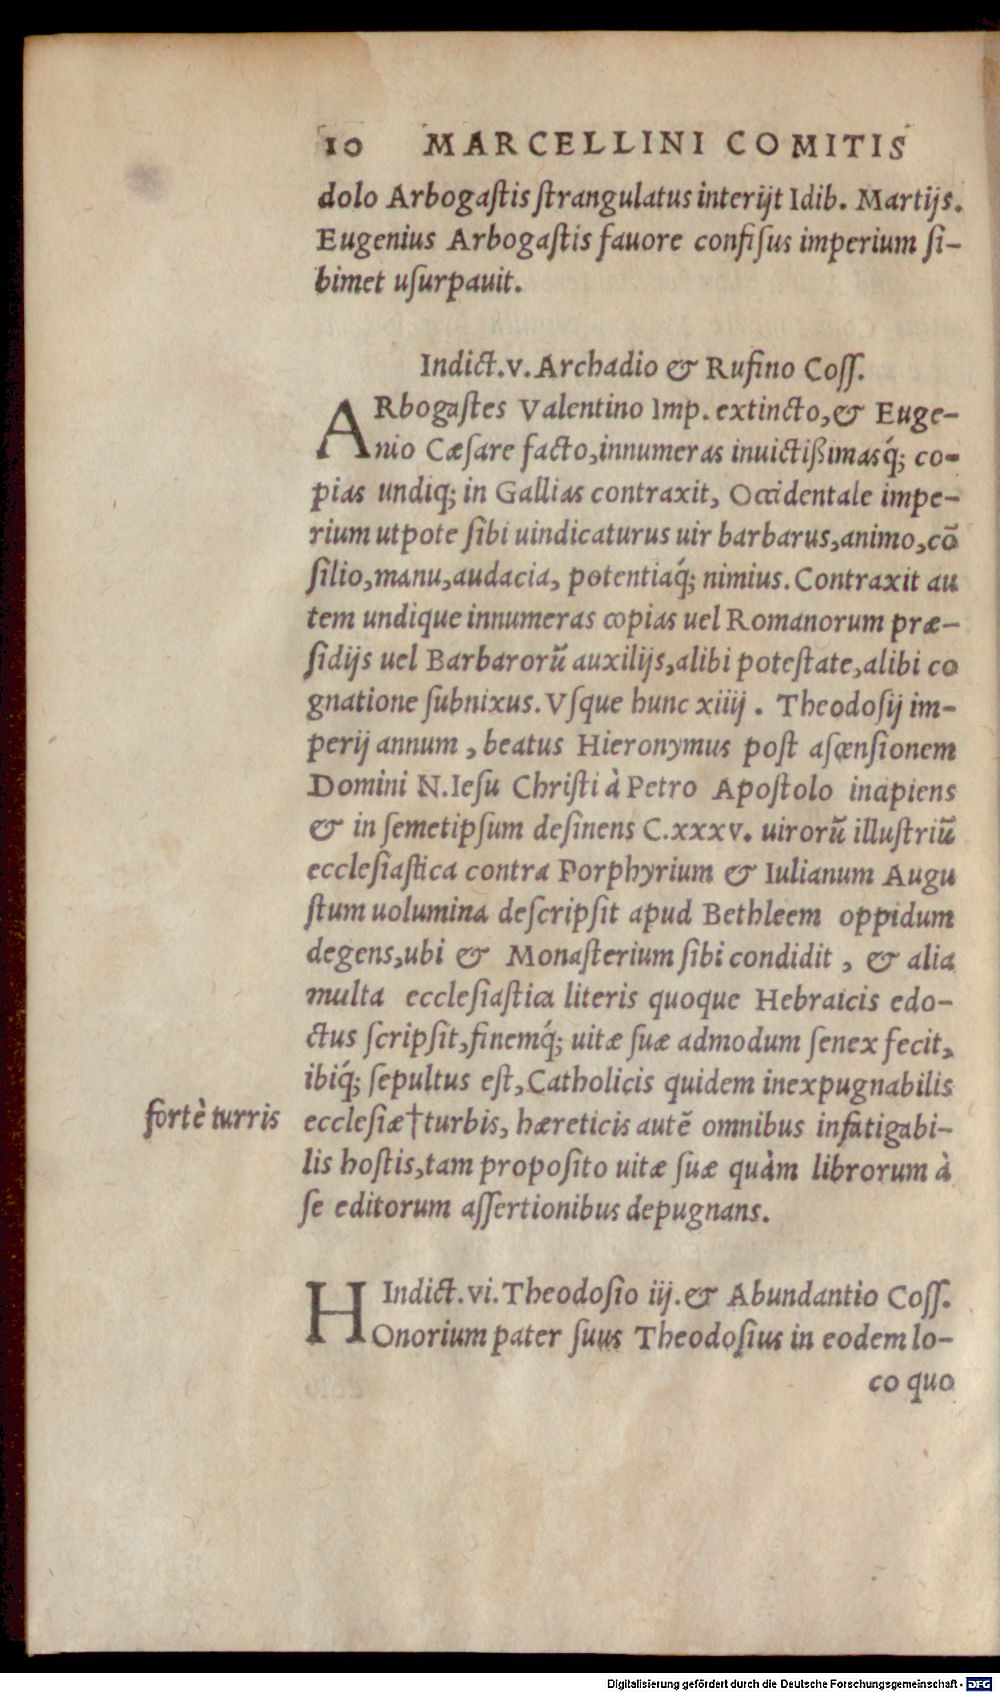 10 MARCELLINI COMITIS
dolo Arbogastis strangulatus interijt Idib. Martijs.
Eugenius Arbogastis fauore confisus imperium si-
bimet usurpauit.
Indict. v. Archadio & Rufino Coss.
ARbogastes Valentino Imp. extincto, & Euge-
nio Cæsare facto, innumeras inuictißimasq́; co-
pias undiq; in Gallias contraxit, Occidentale impe-
rium utpote sibi uindicaturus uir barbarus, animo, cõ
silio, manu, audacia, potentiaq́; nimius. Contraxit au
tem undique innumeras copias uel Romanorum præ-
sidijs uel Barbarorũ auxilijs, alibi potestate, alibi co
gnatione subnixus. Vsque hunc xiiij. Theodosij im-
perij annum, beatus Hieronymus post ascensionem
Domini N. Iesu Christi à Petro Apostolo incipiens
& in semetipsum desinens C.xxxv. uirorũ illustriũ
ecclesiastica contra Porphyrium & Iulianum Augu
stum uolumina descripsit apud Bethleem oppidum
degens, ubi & Monasterium sibi condidit, & alia
multa ecclesiastica literis quoque Hebraicis edo-
ctus scripsit, finemq́; uitæ suæ admodum senex fecit,
ibiq́; sepultus est, Catholicis quidem inexpugnabilis
fortè turris
ecclesiæ†turbis, hæreticis autẽ omnibus infatigabi-
lis hostis, tam proposito uitæ suæ quàm librorum à
se editorum assertionibus depugnans.
Indict. vi. Theodosio iij. & Abundantio Coss.
HOnorium pater suus Theodosius in eodem lo-
co quo
Digitalisierung gefördert durch die Deutsche Forschungsgemeinschaft - DFG